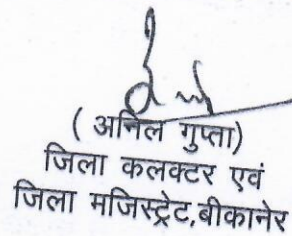 ( अनिल गुप्ता)
जिला कलक्टर एवं
जिला मजिस्ट्रेट,बीकानेर